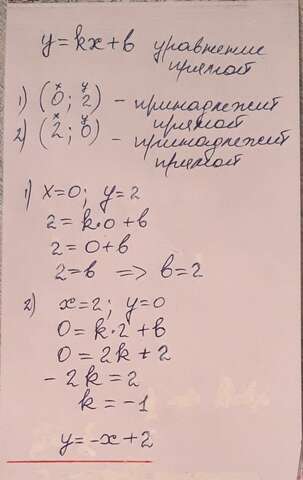 y = kx + b уравнение
прямой
x y
1) (0; 2) - принадлежит
прямой
x y
2) (2; 0) - принадлежит
прямой
1) x=0; y=2
2 = k·0 + b
2 = 0 + b
2 = b => b = 2
2) x=2; y=0
0 = k·2 + b
0 = 2k + 2
-2k = 2
k = -1
y = -x + 2